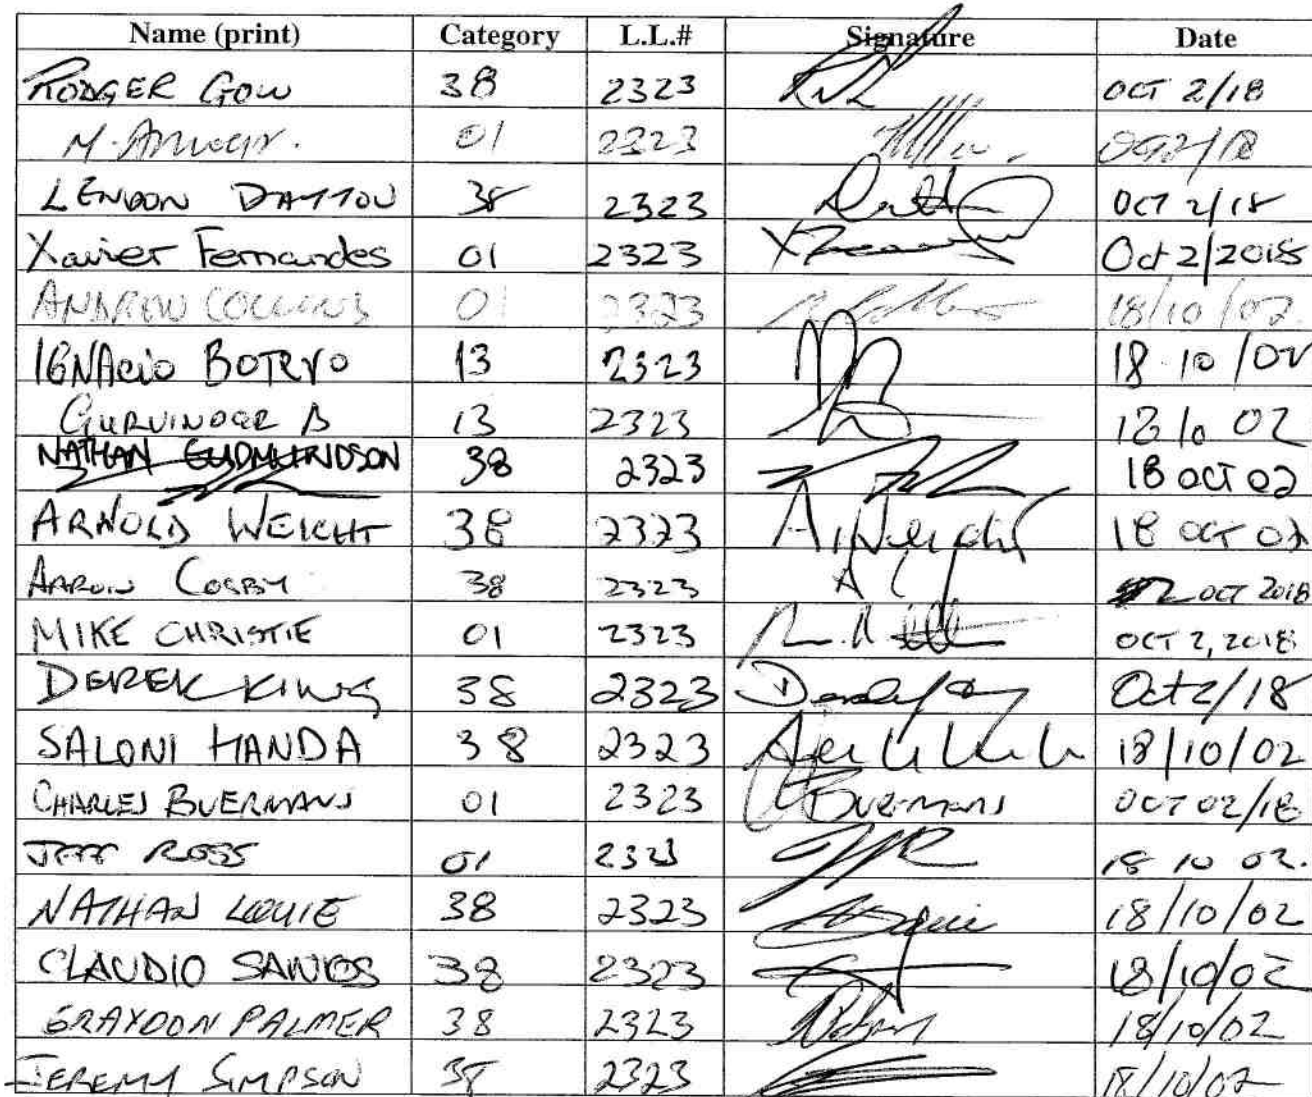 Name (print) Category L.L.# Signature Date
RODGER GOW 38 2323 OCT 2/18
M. 01 2323 OCT 2/18
LENDON DAYTON 38 2323 OCT 2/18
Xavier Fernandes 01 2323 Oct 2/2018
ANDREW COLLINS 01 2323 18/10/02
IGNACIO BOTERO 13 2323 18 10/02
GURVINDER B 13 2323 18 10 02
NATHAN GUDMUNDSON 38 2323 18 OCT 02
ARNOLD WEICHT 38 2323 18 OCT 02
AARON COSBY 38 2323 A C 2 OCT 2018
MIKE CHRISTIE 01 2323 OCT 2, 2018
DEREK KING 38 2323 Oct 2/18
SALONI HANDA 38 2323 18/10/02
CHARLES BUERMANS 01 2323 C Buermans OCT 02/18
JEFF ROSS 01 2323 18 10 02.
NATHAN LOUIE 38 2323 18/10/02
CLAUDIO SANTOS 38 2323 18/10/02
GRAYDON PALMER 38 2323 18/10/02
JEREMY SIMPSON 38 2323 18/10/02